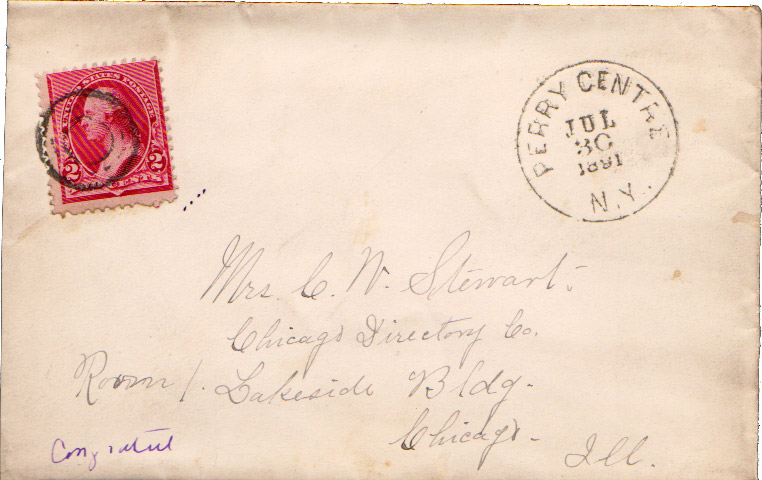 UNITED STATES POSTAGE
2 2
PERRY CENTRE
JUL
30
1891
N.Y.
Mrs. C. W. Stewart.
Chicago Directory Co.
Room 1. Lakeside Bldg.
Chicago - Ill.